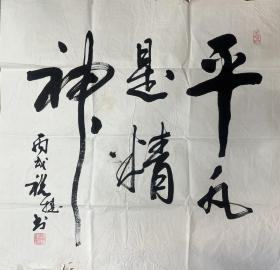 平凡
是精
神
丙戌 书